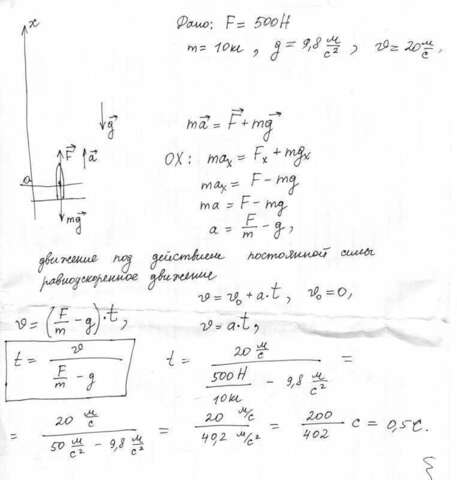 x
Дано: F = 500Н
m = 10кг, g = 9,8 м/с², v = 20 м/с.
g⃗
F⃗ a⃗
0
mg⃗
ma⃗ = F⃗ + mg⃗
OX: maₓ = Fₓ + mgₓ
maₓ = F - mg
ma = F - mg
a = F/m - g,
движение под действием постоянной силы
равноускоренное движение
v = v₀ + a·t, v₀ = 0,
v = (F/m - g)·t, v = a·t,
t = v/(F/m - g) t = (20 м/с)/(500Н/10кг - 9,8 м/с²) =
= (20 м/с)/(50 м/с² - 9,8 м/с²) = (20 м/с)/(40,2 м/с²) = 200/402 с = 0,5с.